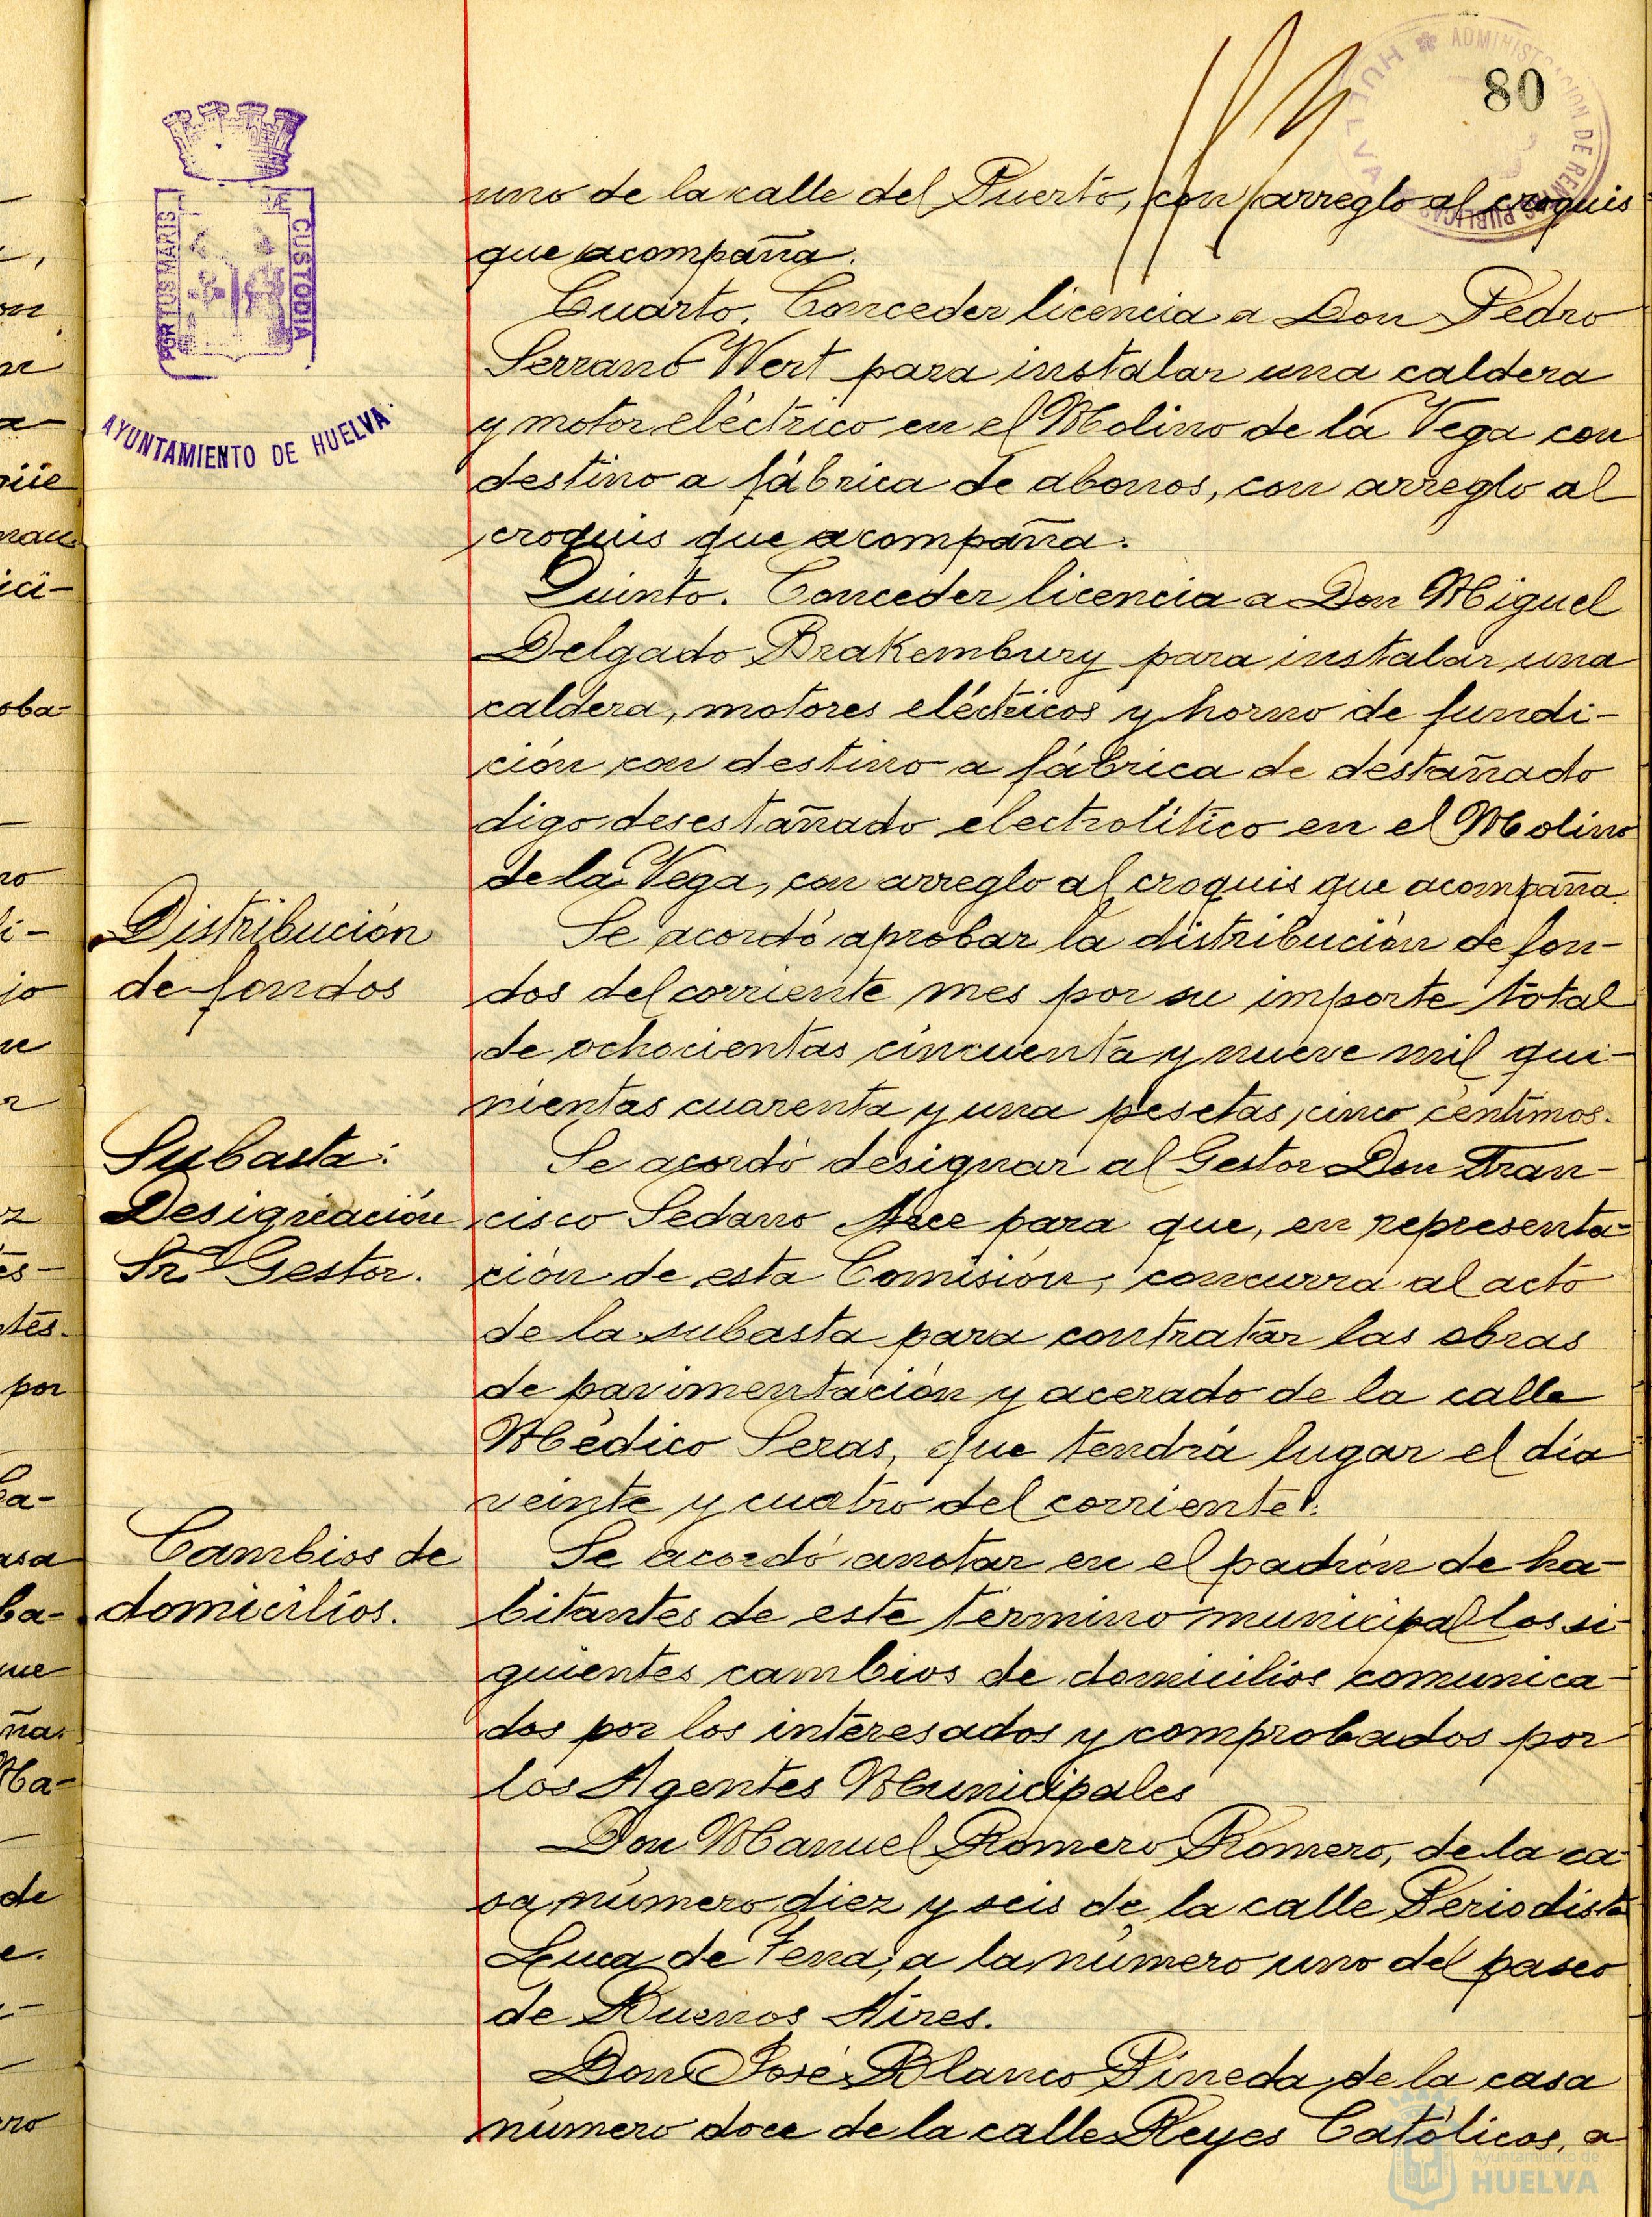 80
ADMINISTRACION DE RENTAS PUBLICAS
HUELVA
PORTUS MARIS
CUSTODIA
AYUNTAMIENTO DE HUELVA
uno de la calle del Puerto, con arreglo al croquis
que acompaña.
Cuarto. Conceder licencia a Don Pedro
Serrano Wert para instalar una caldera
y motor eléctrico en el Molino de la Vega con
destino a fábrica de abonos, con arreglo al
croquis que acompaña.
Quinto. Conceder licencia a Don Miguel
Delgado Brakembury para instalar una
caldera, motores eléctricos y horno de fundi-
ción con destino a fábrica de destañado
digo desestañado electrolítico en el Molino
de la Vega, con arreglo al croquis que acompaña
Distribución
de fondos
Se acordó aprobar la distribución de fon-
dos del corriente mes por su importe total
de ochocientas cincuenta y nueve mil qui-
nientas cuarenta y una pesetas, cinco céntimos.
Subasta:
Designación
Sr. Gestor.
Se acordó designar al Gestor Don Fran-
cisco Sedano Arce para que, en representa-
ción de esta Comisión, concurra al acto
de la subasta para contratar las obras
de pavimentación y acerado de la calle
Médico Seras, que tendrá lugar el día
veinte y cuatro del corriente.
Cambios de
domicilios.
Se acordó anotar en el padrón de ha-
bitantes de este término municipal los si-
guientes cambios de domicilios comunica-
dos por los interesados y comprobados por
los Agentes Municipales
Don Manuel Romero Romero, de la ca-
sa número diez y seis de la calle Periodista
Luca de Tena, a la número uno del paseo
de Buenos Aires.
Don José Blanco Pineda, de la casa
número doce de la calle Reyes Católicos, a
Ayuntamiento de
HUELVA